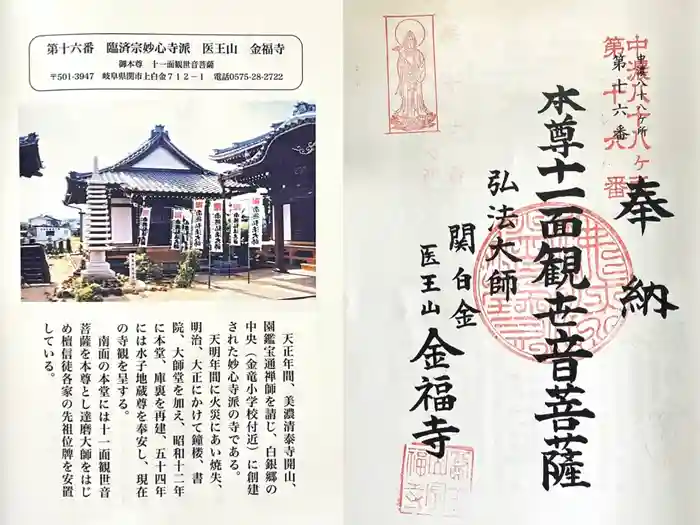 第十六番　臨済宗妙心寺派　医王山　金福寺
御本尊　十一面観世音菩薩
〒501-3947　岐阜県関市上白金７１２－１　電話0575-28-2722
天正年間、美濃清泰寺開山、
園鑑宝通禅師を請じ、白銀郷の
中央（金竜小学校付近）に創建
された妙心寺派の寺である。
天明年間に火災にあい焼失、
明治、大正にかけて鐘楼、書
院、大師堂を加え、昭和十二年
に本堂、庫裏を再建、五十四年
には水子地蔵尊を奉安し、現在
の寺観を呈する。
南面の本堂には十一面観世音
菩薩を本尊とし達磨大師をはじ
め檀信徒各家の先祖位牌を安置
している。
中濃八十八ヶ所
第十六番
中濃八十八ヶ所
第十六番
奉納
本尊十一面観世音菩薩
弘法大師
関白金
医王山
金福寺